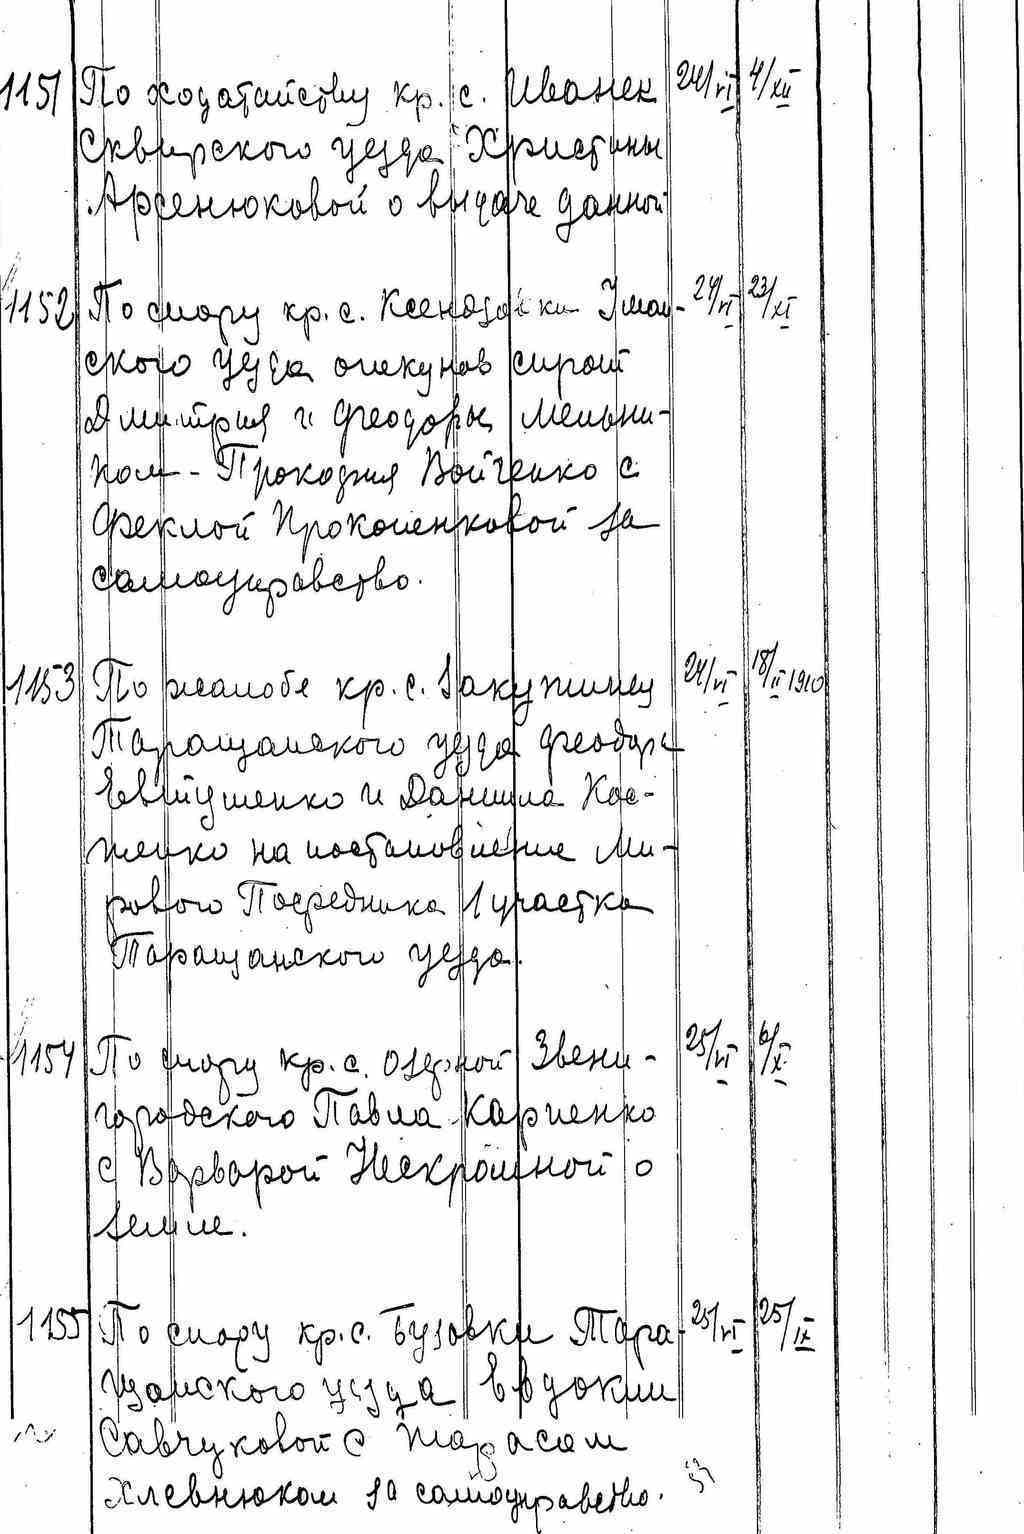 1151 По ходатайству кр. с. Иванек 24/VI 4/XII
Сквирского уезда Христины
Арсенюковой о выдаче данной
1152 По спору кр. с. Уман- 24/VI 23/XI
ского уезда опекунов сирот
Дмитрия и Феодоры Мельни-
ком - Прокофия Войченко с
Феклой Прокопенковой за
самоуправство.
1153 По жалобе кр. с. Закутинец 24/VI 18/II 1910
Таращанского уезда Феодора
Евтушенко и Даниила Кос-
тенко на постановление Ми-
рового Посредника 1 участка
Таращанского уезда.
1154 По спору кр. с. Озерной Звени- 25/VI 6/XI
городского Павла Карпенко
с Варварой Нескромной о
земле.
1155 По спору кр. с. Бузовки Тара- 25/VI 25/IX
щанского уезда Евдокии
Савчуковой с Тарасом
Хлевнюком за самоуправство.